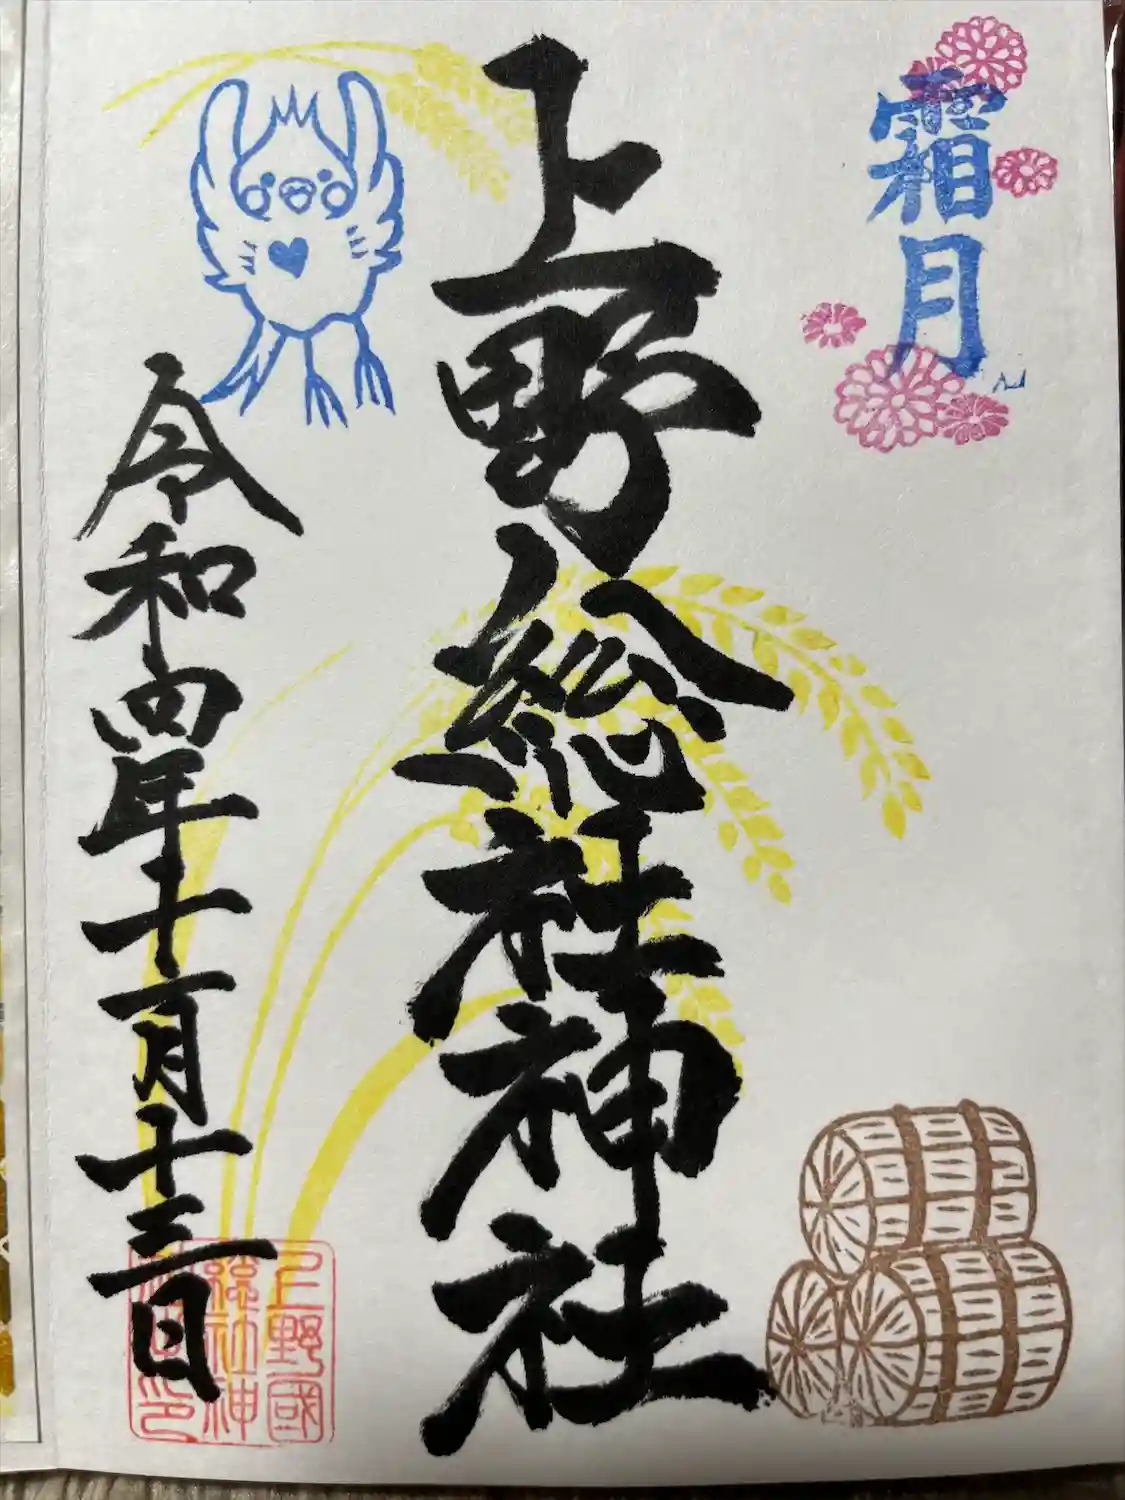 霜月
上野総社神社
令和四年十一月十三日
上野國
総社神